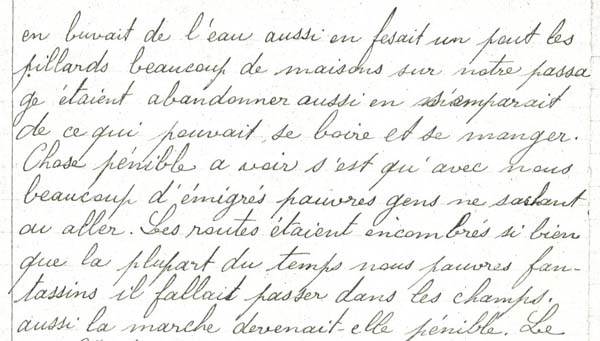 en buvait de l'eau aussi en fesait un pout les
pillards beaucoup de maisons sur notre passa
ge étaient abandonner aussi en s'emparait
de ce qui pouvait se boire et se manger.
Chose pénible a voir s'est qu'avec nous
beaucoup d'émigrés pauvres gens ne sachant
ou aller. Les routes étaient encombrés si bien
que la plupart du temps nous pauvres fan-
tassins il fallait passer dans les champs.
aussi la marche devenait-elle pénible. Le